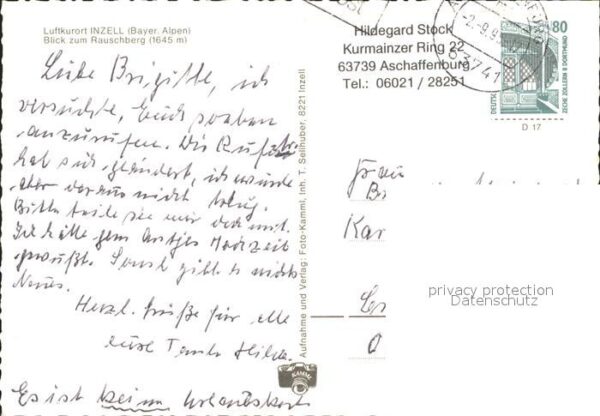 Luftkurort INZELL (Bayer. Alpen)
Blick zum Rauschberg (1645 m)
Liebe Brigitte, ich
versuchte, Euch soeben
anzurufen. Die Rufnr.
hat sich geändert, ich wurde
aber daraus nicht klug.
Bitte teile sie mir doch mit.
Ich hätte gern Antjes Hochzeit
gewußt. Sonst gibt es nichts
Neues.
Herzl. Grüße für alle
eure Tante Hilde.
Es ist kein Urlaubskort
Aufnahme und Verlag: Foto-Kamml, Inh. T. Sellhuber, 8221 Inzell
KAMML
Hildegard Stock
Kurmainzer Ring 22
63739 Aschaffenburg
Tel.: 06021 / 28251
63741
80
DEUTSCHE
ZECHE ZOLLERN II DORTMUND
D 17
Frau
Br
Kar
O
privacy protection
Datenschutz